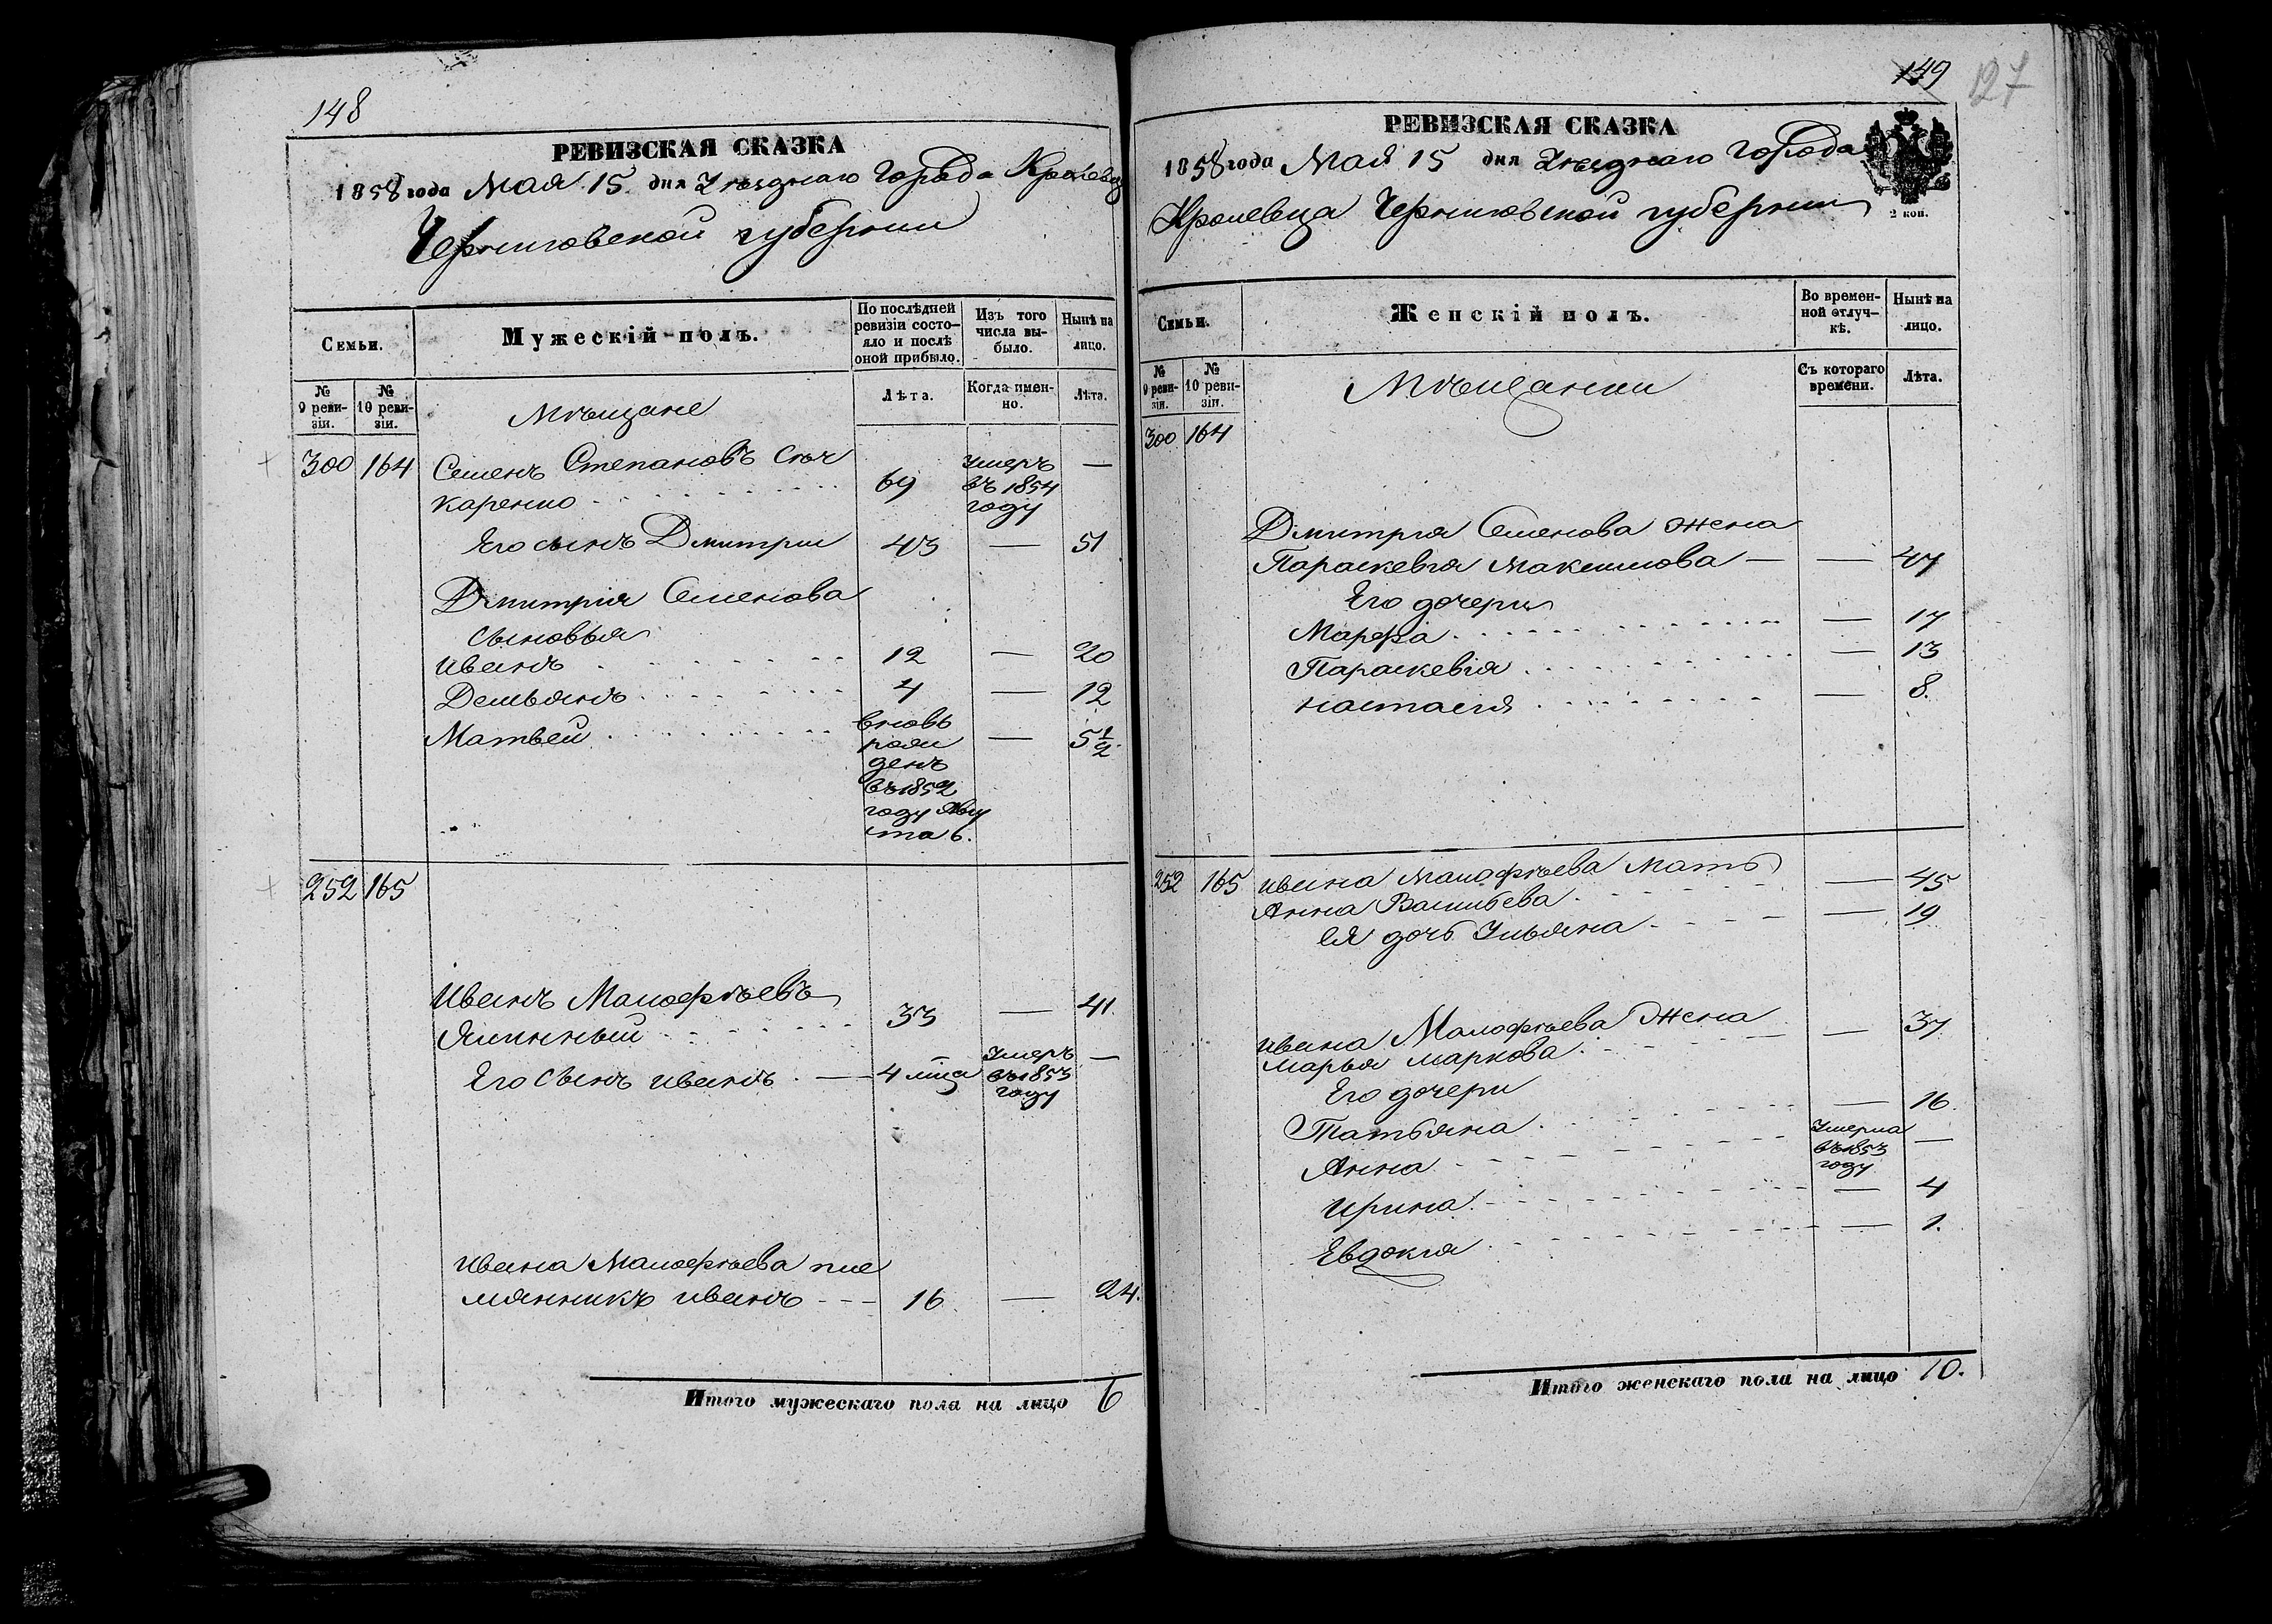 148
РЕВИЗСКАЯ СКАЗКА
1858 года Мая 15 дня Уѣзднаго города Кролевца
Черниговской губернии
Семьи.
Мужескій полъ.
По послѣдней ревизіи состояло и послѣ оной прибыло.
Изъ того числа выбыло.
Нынѣ на лицо.
№ 9 ревизіи.
№ 10 ревизіи.
Мѣщане
Лѣта.
Когда именно.
Лѣта.
300 164 Семенъ Степановъ Слюч
каренко 69 Умеръ въ 1854 году —
Его сынъ Дмитрии 43 — 51
Дмитрія Семенова
сыновья
Иванъ 12 — 20
Демьянъ 4 — 12
Матвей вновь рожденъ въ 1852 году Августа 6. — 5 1/2
252 165
Иванъ Малофѣевъ
33 — 41.
Его сынъ Иванъ 4 м̃ца Умеръ въ 1853 году —
Ивана Малофѣева пле
мянникъ Иванъ 16 — 24.
Итого мужескаго пола на лицо 6
149
127
РЕВИЗСКАЯ СКАЗКА
1858 года Мая 15 дня Уѣзднаго города
Кролевца Черниговской губернии
2 коп.
Семьи.
Женскій полъ.
Во временной отлучкѣ.
Нынѣ на лицо.
№ 9 ревизіи.
№ 10 ревизіи.
Мѣщанки
Съ котораго времени.
Лѣта.
300 164
Дмитрия Семенова жена
Параскевія Максимова — — 47
Его дочери
Марфа — 17
Параскевія — 13
Настасія — 8.
252 165 Ивана Малофѣева мать — 45
Анна Васильева — 19
Ея дочь Ульяна
Ивана Малофѣева жена — 37
Марья Маркова
Его дочери
Татьяна — 16.
Анна Умерла въ 1853 году —
Ирина — 4
Евдокія — 1.
Итого женскаго пола на лицо 10.